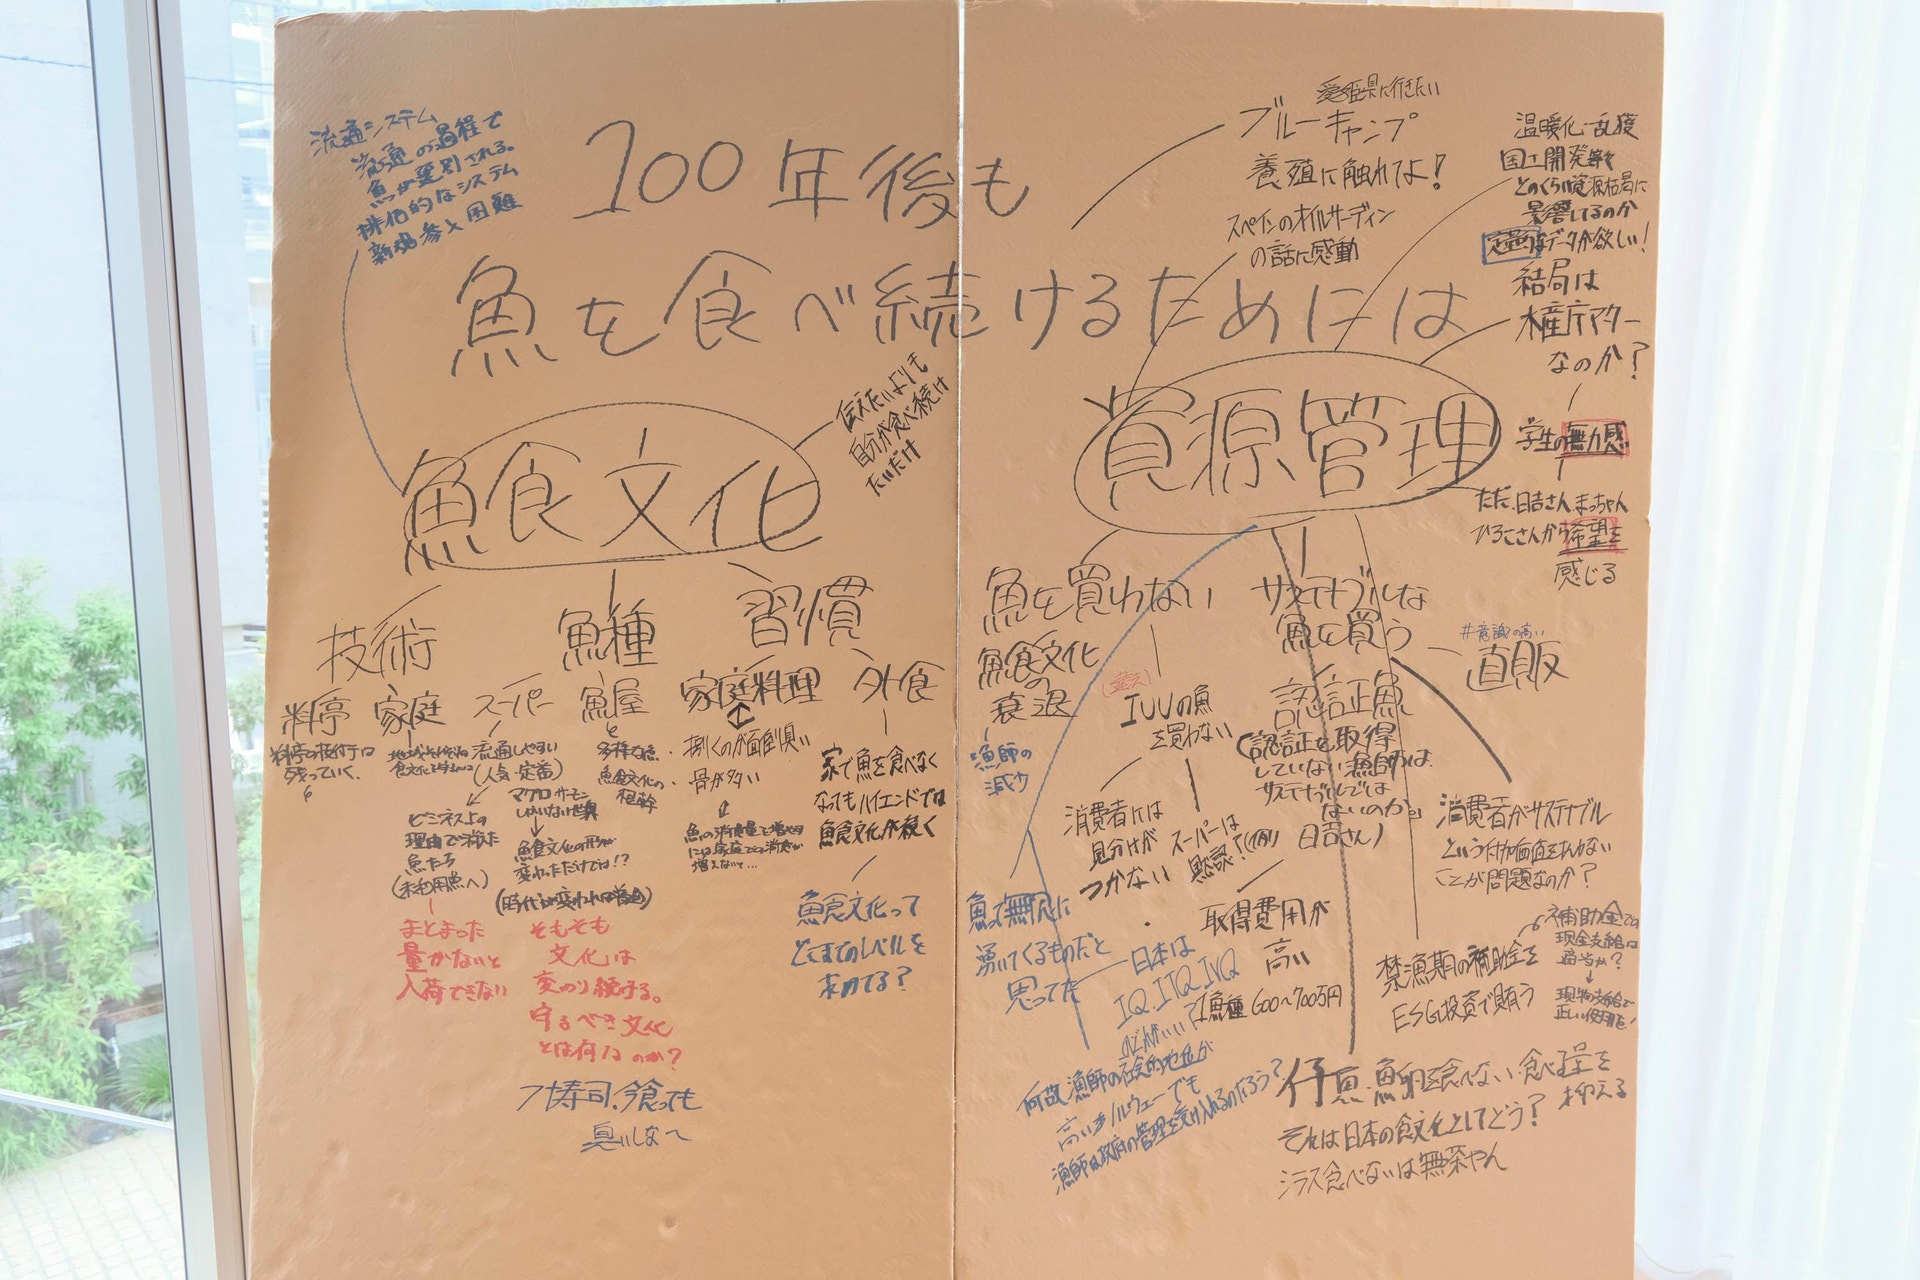 100年後も
魚を食べ続けるためには
流通システム
流通の過程で
魚が選別される。
排他的なシステム
新規参入困難
魚食文化
伝えたいよりも
自分が食べ続け
たいだけ
技術
料亭
料亭の技術は
残っていく。
家庭
魚種
スーパー
流通しやすい
(人気・定番)
ビジネス上の
理由で消えた
魚たち
(未利用魚へ)
まとまった
量がないと
入荷できない
マグロ サーモン
しかいない世界
魚食文化の形が
変わっただけでは!?
そもそも
文化は
変わり続ける。
守るべき文化
とは何なのか?
フナ寿司、今食っても
臭いしな〜
魚屋
多様な魚
魚食文化の
根幹
習慣
家庭料理
・捌くのが面倒臭い
・骨が多い
魚の消費量を増やす
には家庭での消費が
増えないと…
外食
家で魚を食べなく
なってもハイエンドでは
魚食文化が続く
魚食文化って
どこまでのレベルを
求めてる?
資源管理
愛媛県に行きたい
ブルーキャンプ
養殖に触れてよ!
スペインのオイルサーディン
の話に感動
温暖化・乱獲
国土開発等が
どのくらい資源枯渇に
影響してるのか
定量的なデータが欲しい!
結局は
水産庁マター
なのか?
学生の無力感
ただ、日吉さん まっちゃん
ひろこさんから希望を
感じる
魚を買わない
魚食文化
の
衰退
漁師の
減少
IUUの魚
を買わない
消費者には
見分けが
つかない
スーパーは
黙認?
魚って無限に
湧いてくるものだと
思ってた
日本は
IQ、ITQ、IVQ
のどれがいい?
何故漁師の社会的地位が
高いノルウェーでも
漁師は政府の管理を受け入れるのだろう?
サステナブルな
魚を買う
#意識の高い
直販
認証魚
(認証を取得
していない漁師は
サステナブルでは
ないのか
日吉さん)
取得費用が
高い
1魚種 600〜700万円
消費者がサステナブル
という付加価値を求めない
ことが問題なのか?
禁漁期の補助金を
ESG投資で賄う
補助金での
現金支給は
適当か?
現物の支給で
正しい使用を!
仔魚、魚卵を食べない・食べる量を
抑える
それは日本の食文化としてどう?
シラス食べないは無茶やん